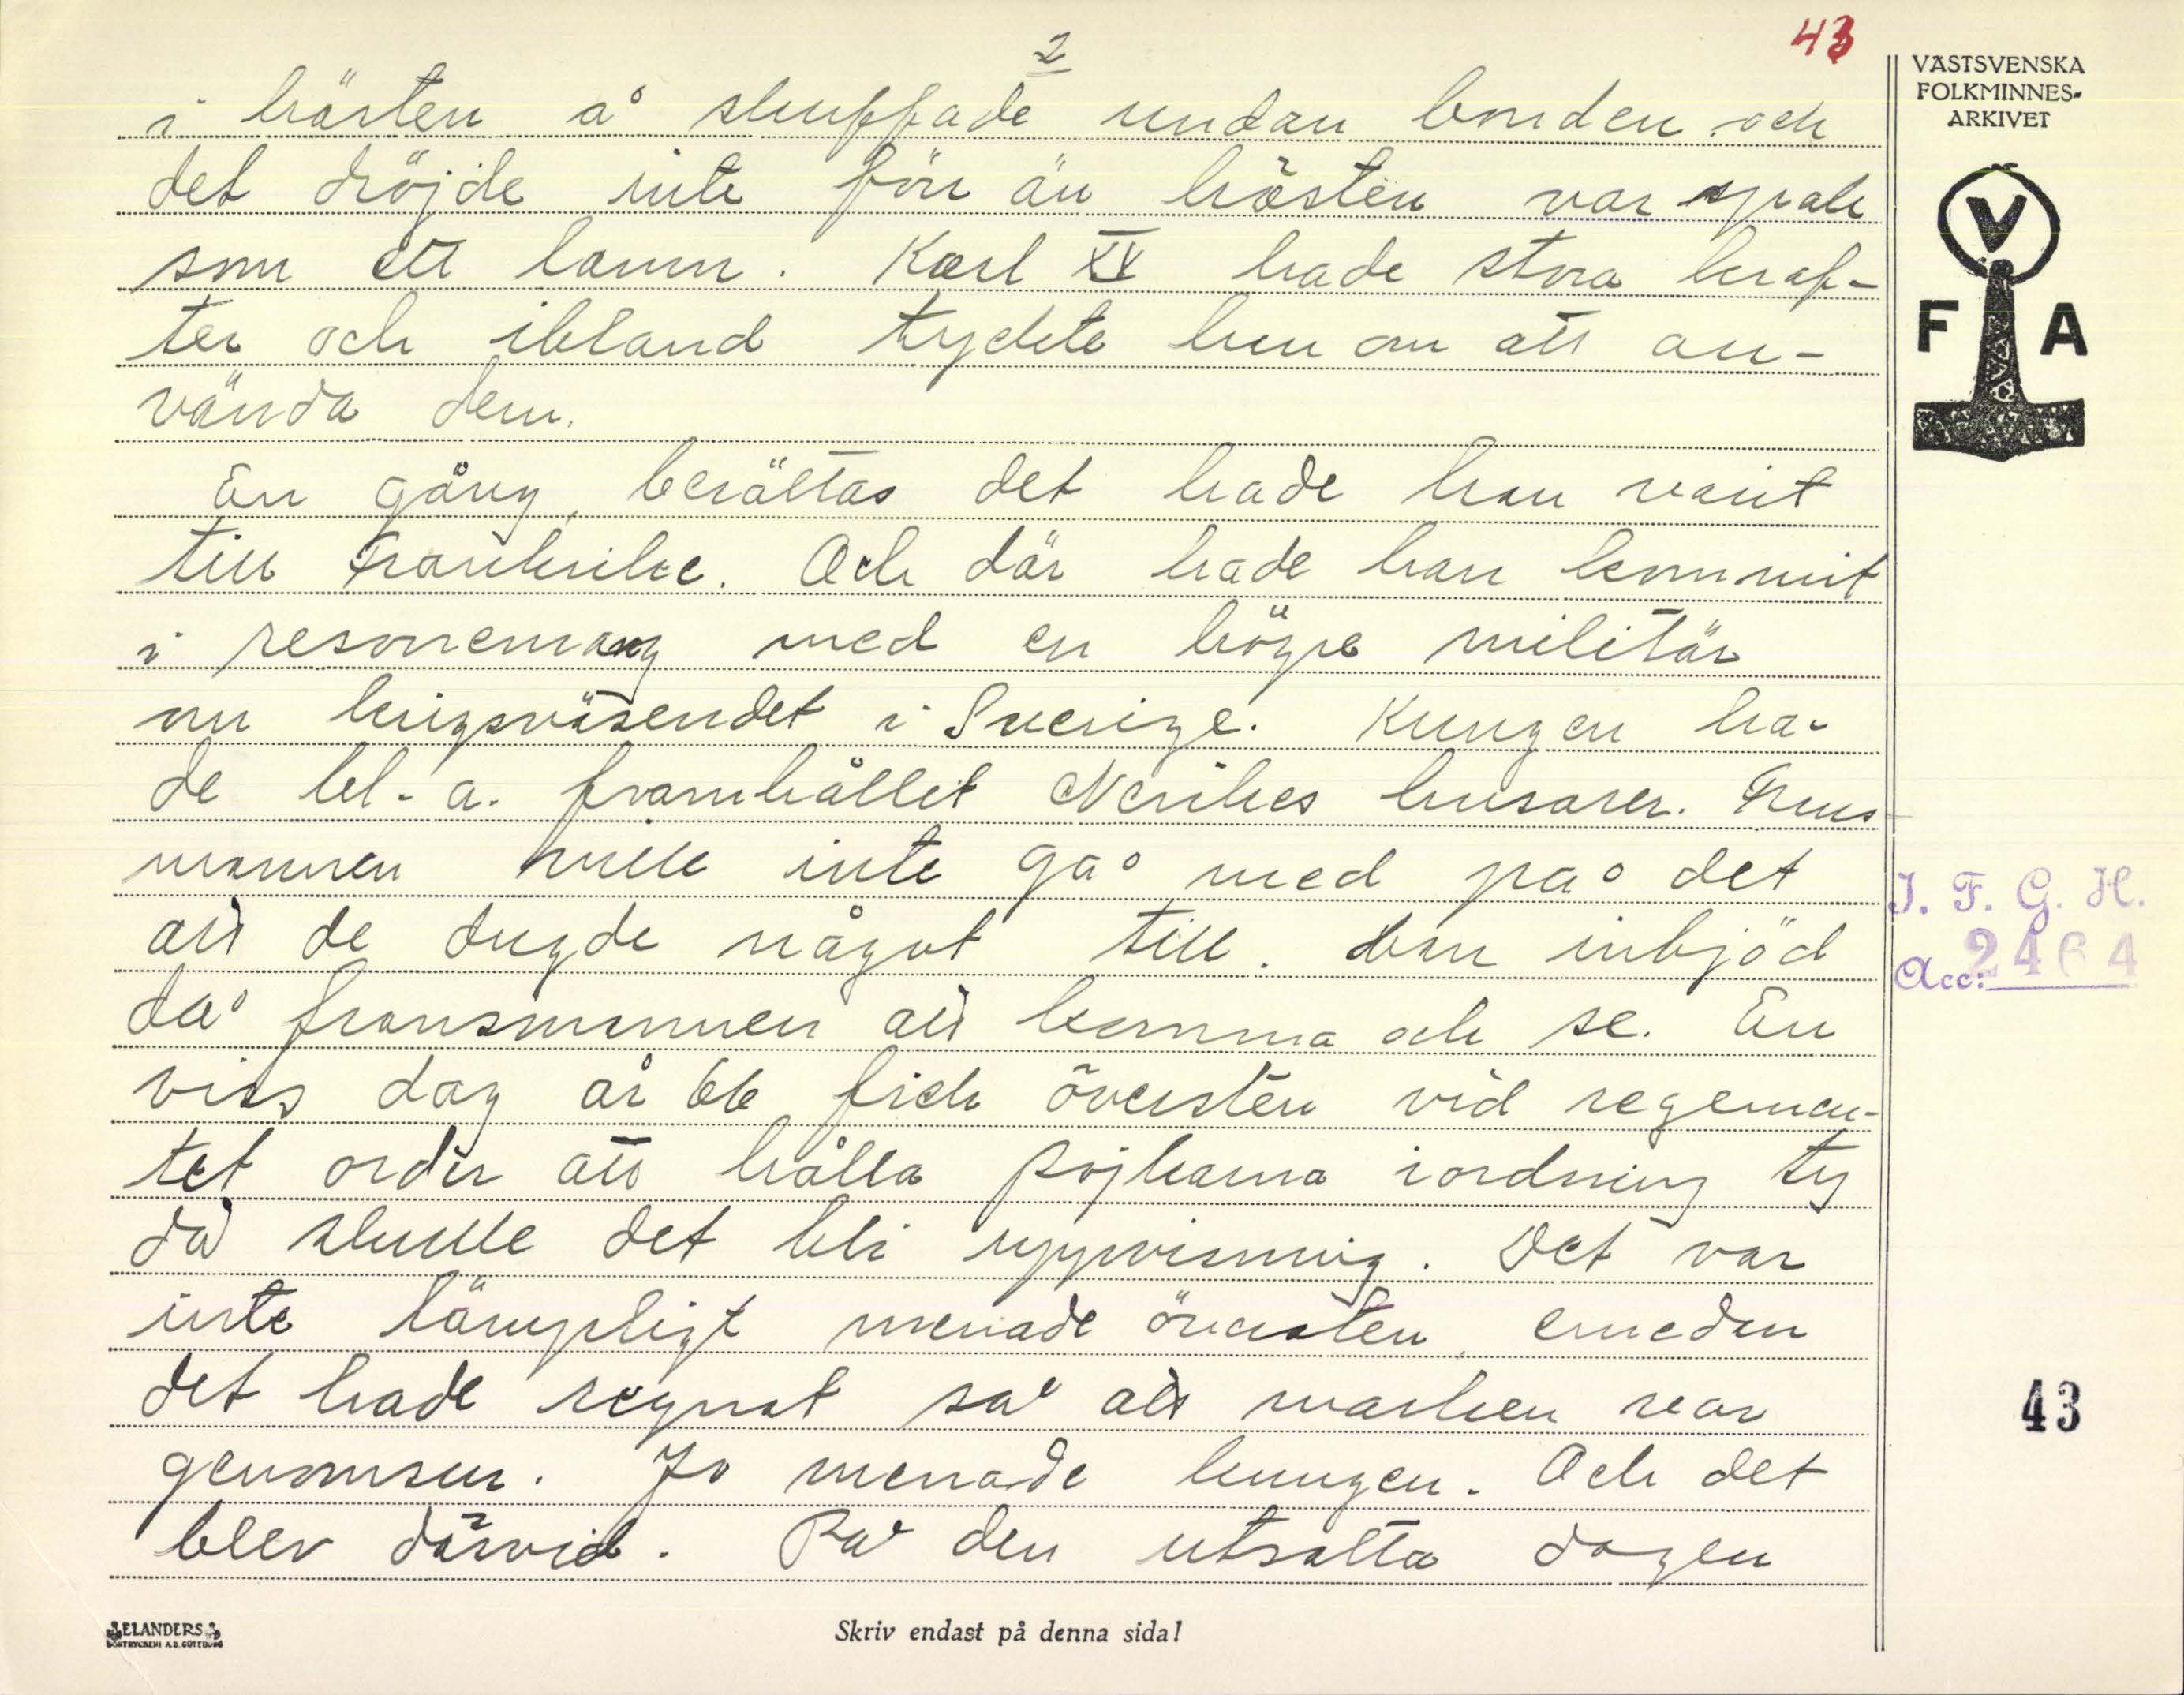 2
43
i hästen å skuffade undan bonden och
det dröjde inte förr än hästen var spak
som ett lamm. Karl XV hade stora kraf-
ter och ibland tyckte hun om att an-
vända dem.
En gång, berättas det hade han varit
till Frankrike. Och där hade han kommit
i resonemang med en högre militär
om krigsväsendet i Sverige. Kungen ha-
de bl. a. framhållit Nerikes husarer. Frans
mannen ville inte gå med på det
att de dugde något till. Han inbjöd
då fransmannen att komma och se. En
viss dag år 66 fick översten vid regemen-
tet order att hålla pojkarna iordning ty
då skulle det bli uppvisning. Det var
inte lämpligt menade översten, emedan
det hade regnat så att marken var
genomsur. Jo menade kungen. Och det
blev därvid. På den utsatta dagen
VÄSTSVENSKA
FOLKMINNES-
ARKIVET
V
F A
I. F. G. H.
Acc: 2464
43
ELANDERS
BOKTRYCKERI A.B. GÖTEBORG
Skriv endast på denna sida!